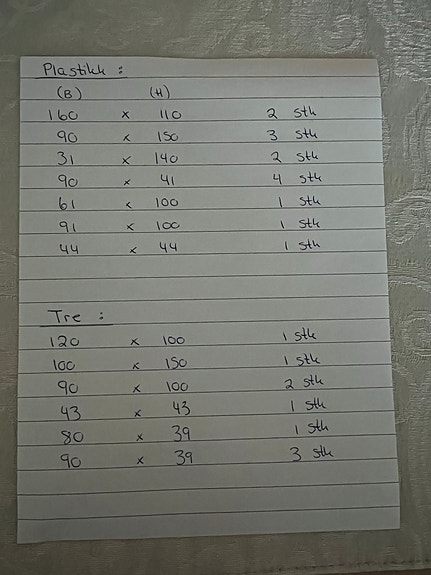 Plastikk :
(B) (H)
160 x 110 2 stk
90 x 150 3 stk
31 x 140 2 stk
90 x 41 4 stk
61 x 100 1 stk
91 x 100 1 stk
44 x 44 1 stk
Tre :
120 x 100 1 stk
100 x 150 1 stk
90 x 100 2 stk
43 x 43 1 stk
80 x 39 1 stk
90 x 39 3 stk